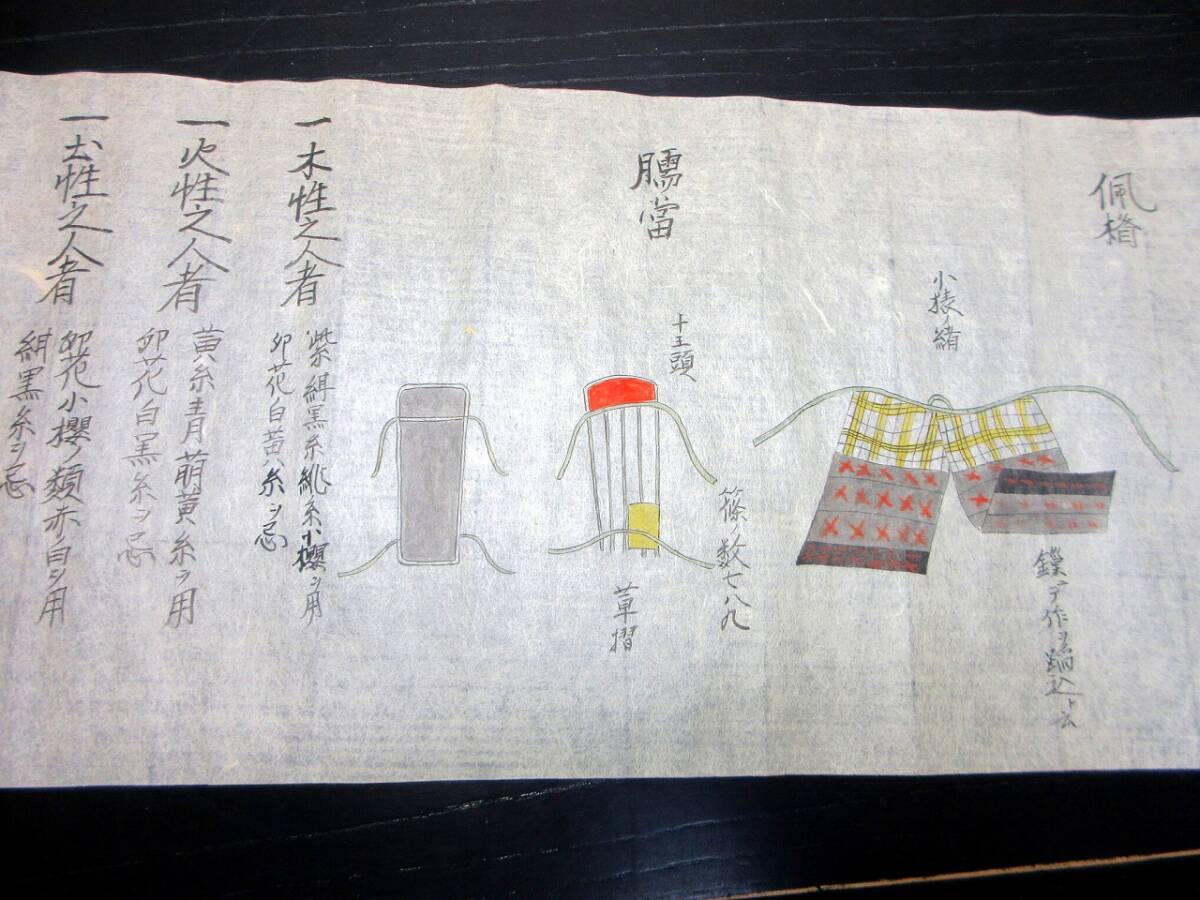 佩楯
小猿ノ緒
鏁デ作ヲ踏込ト云
臑當
十王頭
篠ノ数七八九
草摺
一木性之人者
紫紺黒糸縅糸小櫻ヲ用
卯花白黄糸ヲ忌
一火性之人者
黄糸青萌黄糸ヲ用
卯花白黒糸ヲ忌
一土性之人者
卯花小櫻ノ類赤白ヲ用
紺黒糸ヲ忌